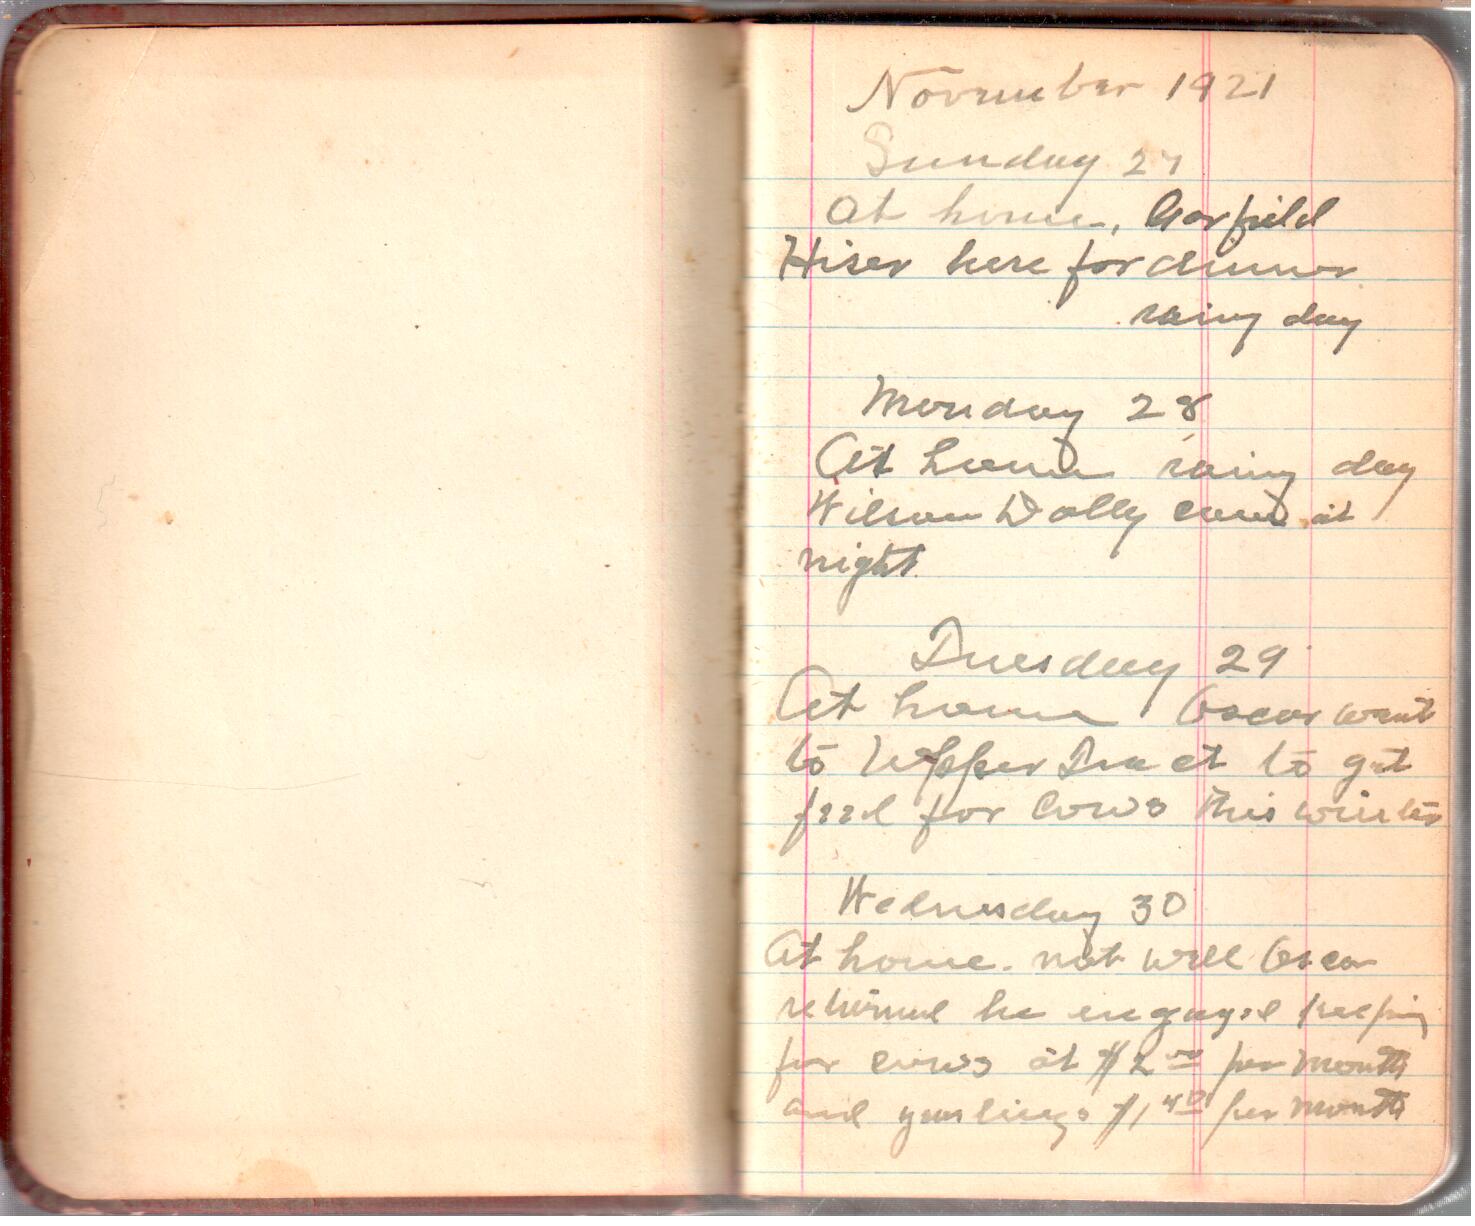 November 1921
Sunday 27
At home, Garfield
Hiser here for dinner
rainy day
Monday 28
At home rainy day
Wilson Dolly came at
night.
Tuesday 29
At home Oscar went
to Upper Tract to get
feed for cows this winter
Wednesday 30
At home. not well Oscar
returned he engaged keeping
for cows at $2.00 per month
and yearlings $1.40 per month